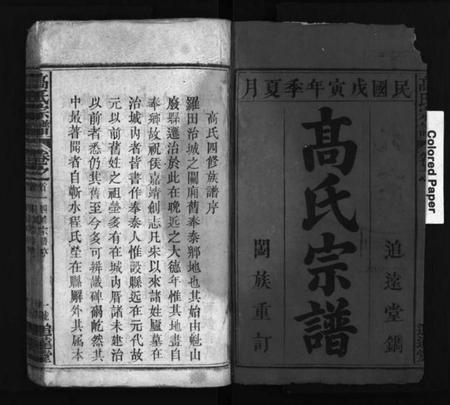 民國戊寅年季夏月
高氏宗譜
追遠堂鐫
闔族重訂
Colored Paper
高氏四修族譜序
羅田治城之關廂舊奉泰鄉地也其始由魁山
廢縣遷治於此在晚近之大德年惟其地畫自
奉鄉故祝侯嘉靖創志凡宋以來諸姓廬墓在
治城內者皆書作奉泰人惟設縣遠在元代故
元以前舊姓之祖塋多有在城內厝諸未建治
以前者悉仍其舊至今多可辨識碑碣屹然其
中最著聞者自蘄水程氏塋在縣廨外其屬本
高氏宗譜
卷之首
追遠堂